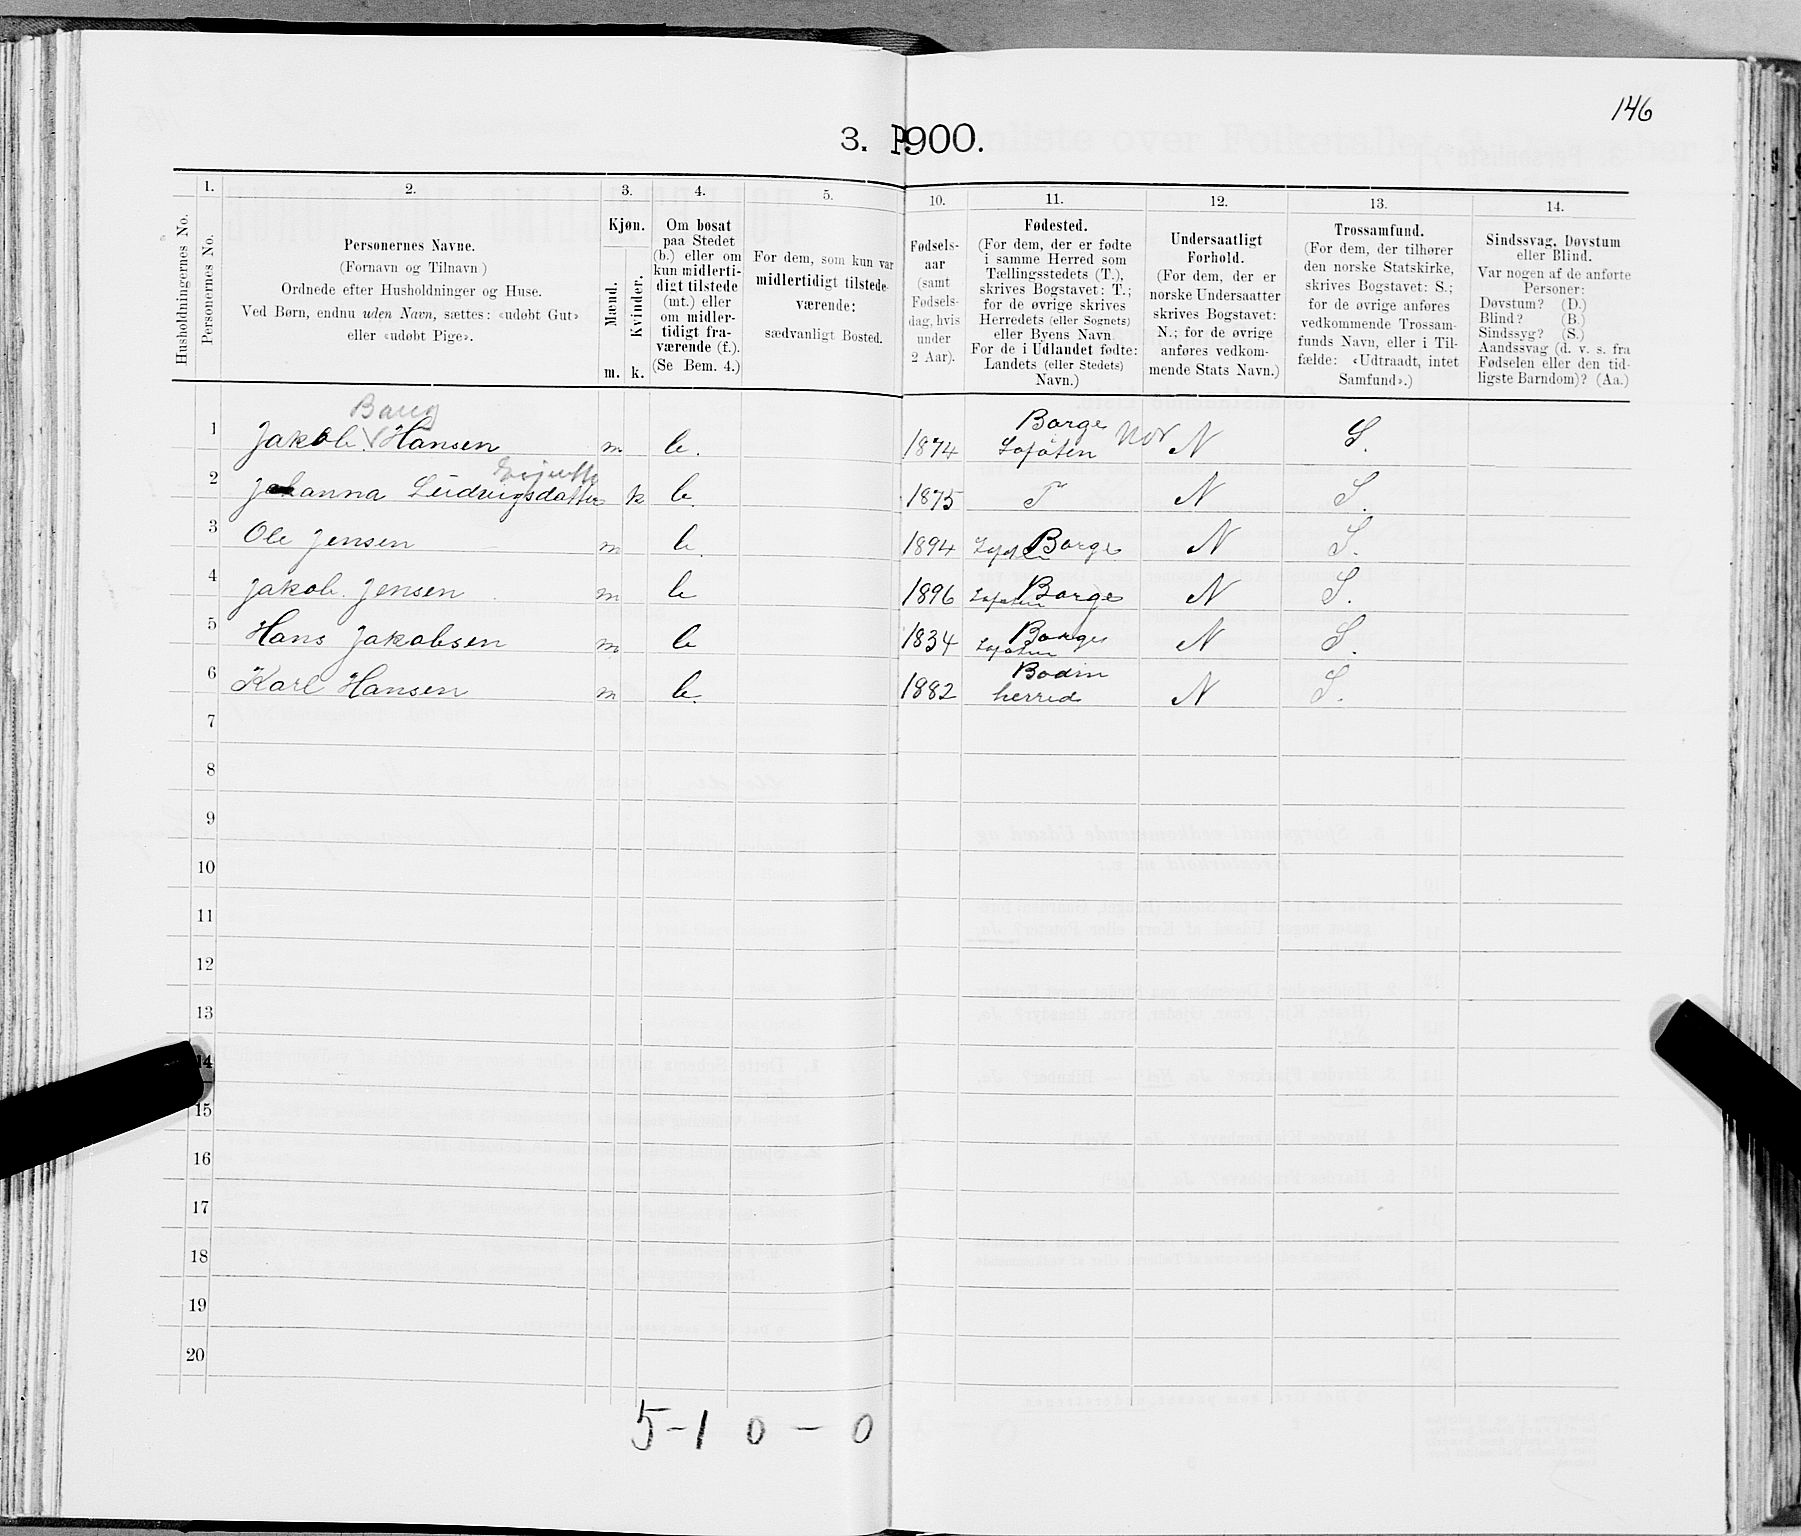 146
3. P900.
Husholdningernes No.
1.
Personernes No.
2.
Personernes Navne.
(Fornavn og Tilnavn)
Ordnede efter Husholdninger og Huse.
Ved Børn, endnu uden Navn, sættes: «udøbt Gut»
eller «udøbt Pige».
3.
Kjøn.
Mænd.
Kvinder.
m. k.
4.
Om bosat
paa Stedet
(b.) eller om
kun midlerti-
digt tilstede
(mt.) eller
om midler-
tidigt fra-
værende (f.).
(Se Bem. 4.)
5.
For dem, som kun var
midlertidigt tilstede-
værende:
sædvanligt Bosted.
10.
Fødsels-
aar
(samt
Fødsels-
dag, hvis
under
2 Aar).
11.
Fødested.
(For dem, der er fødte
i samme Herred som
Tællingsstedets (T.),
skrives Bogstavet: T.;
for de øvrige skrives
Herredets (eller Sognets)
eller Byens Navn.
For de i Udlandet fødte:
Landets (eller Stedets)
Navn.)
12.
Undersaatligt
Forhold.
(For dem, der er
norske Undersaatter
skrives Bogstavet:
N.; for de øvrige
anføres vedkom-
mende Stats Navn.)
13.
Trossamfund.
(For dem, der tilhører
den norske Statskirke,
skrives Bogstavet: S.;
for de øvrige anføres
vedkommende Trossam-
funds Navn, eller i Til-
fælde: «Udtraadt, intet
Samfund».)
14.
Sindssvag, Døvstum
eller Blind.
Var nogen af de anførte
Personer:
Døvstum? (D.)
Blind? (B.)
Sindssyg? (S.)
Aandssvag (d. v. s. fra
Fødselen eller den tid-
ligste Barndom)? (Aa.)
1 Jakob Hansen m b. 1874 Borge Lofoten N S.
2 Johanna Ludvigsdatter k b. 1875 T N S.
3 Ole Jensen m b. 1894 Borge N S.
4 Jakob Jensen m b 1896 Borge Lofoten N S.
5 Hans Jakobsen m b 1834 Borge Lofoten N S.
6 Karl Hansen m b. 1882 Bodin herred N S.
7
8
9
10
11
12
13
14
15
16
17
18
19
20
5-1 0 - 0